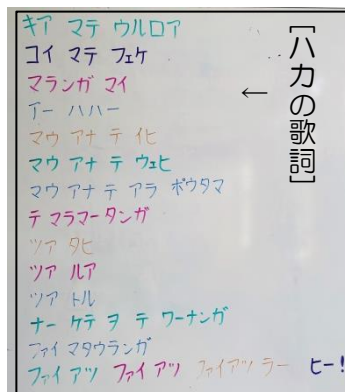 [ハカの歌詞]
←
キア マテ ウルロア
コイ マテ フェケ
マランガ マイ
アー ハハー
マウ アナ テ イヒ
マウ アナ テ ウェヒ
マウ アナ テ アラ ポウタマ
テ マラマータンガ
ツア タヒ
ツア ルア
ツア トル
ナー ケテ ヲ テ ワーナンガ
ファイ マタウランガ
ファイ アツ ファイ アツ ファイアツ ラー ヒー!